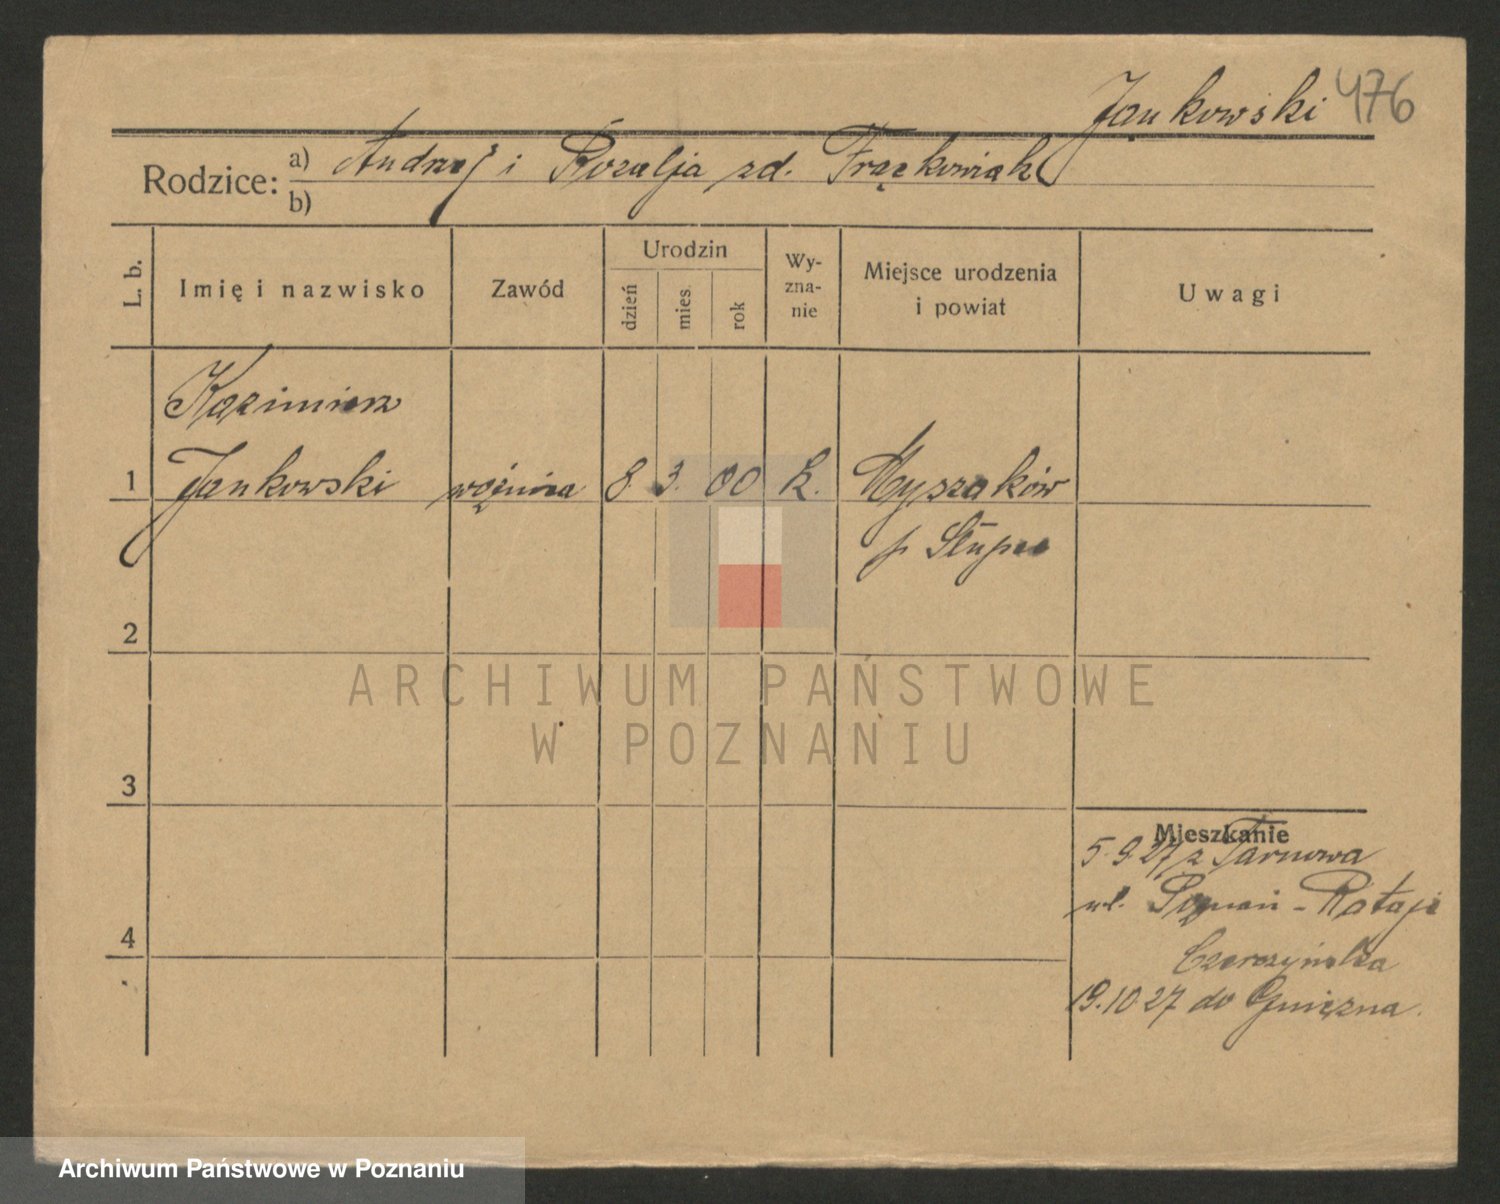 Jankowski 476
Rodzice: a) Andrzej i Rozalja zd. Frąckowiak
b)
L. b.
Imię i nazwisko
Zawód
Urodzin
dzień
mies.
rok
Wy-
zna-
nie
Miejsce urodzenia
i powiat
Uwagi
Kazimierz
1 Jankowski woźnica 8. 3. 00 k. Myszaków
p Słupca
2
3
4
Mieszkanie
5.9.27 z Tarnowa
wł. Poznań - Rataje
19.10.27 do Gniezna.
ARCHIWUM PAŃSTWOWE
W POZNANIU
Archiwum Państwowe w Poznaniu